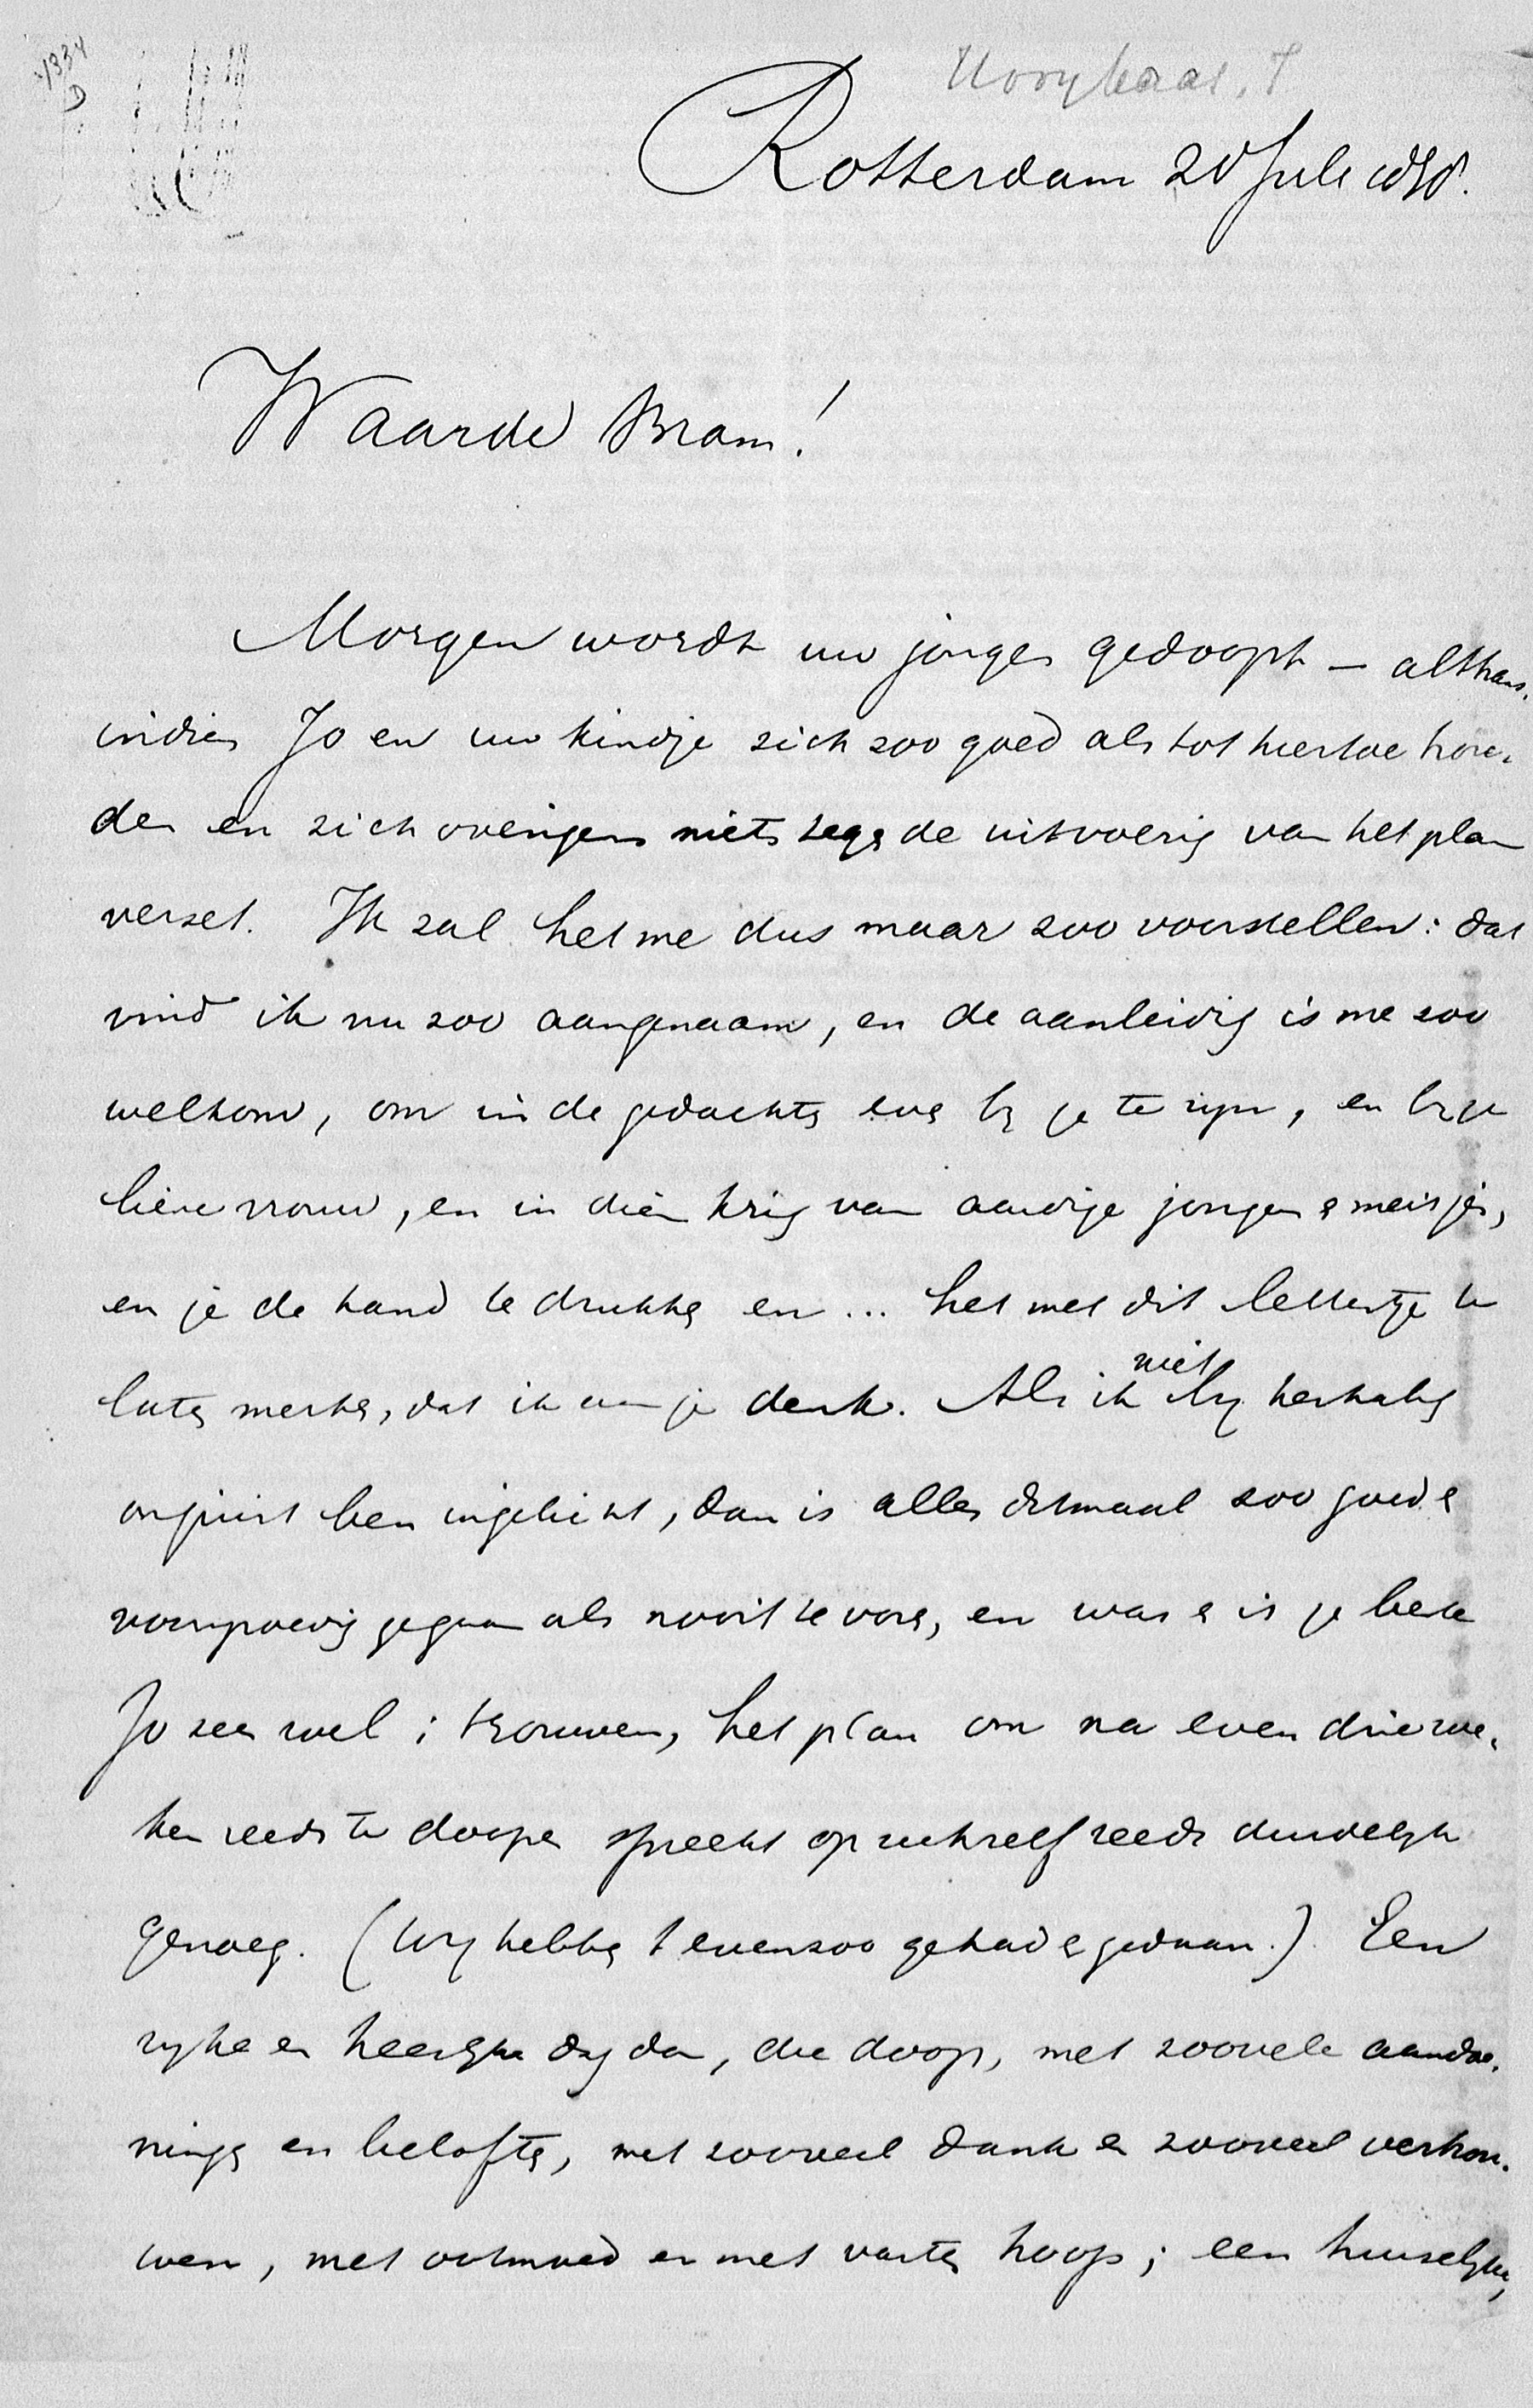 1334
D
Hooykaas, I
Rotterdam 20 Juli 1878.
Waarde Bram!
Morgen wordt uw jongen gedoopt – althans,
indien Jo en uw kindje zich zoo goed als tot hiertoe hou-
den en zich overigens niets tegen de uitvoering van het plan
verzet. Ik zal het me dus maar zoo voorstellen: dat
vind ik nu zoo aangenaam, en de aanleiding is me zoo
welkom, om in de gedachten eens bij je te zijn, en bij je
lieve vrouw, en in dien kring van aardige jongens en meisjes,
en je de hand te drukken en ... het met dit lettertje te
laten merken, dat ik aan je denk. Als ik niet bij herhaling
onjuist ben ingelicht, dan is alles ditmaal zoo goed en
voorspoedig gegaan als nooit te voren, en was en is je beste
Jo zeer wel; trouwens, het plan om na even drie we-
ken reeds te doopen spreekt op zichzelf reeds duidelijk
genoeg. (Wij hebben 't evenzoo gehad en gedaan.) Een
rijke en heerlijke dag dan, die doop, met zoovele aandoe-
ningen en beloften, met zooveel dank en zooveel vertrou-
wen, met ootmoed en met vaste hoop; een huiselijke,